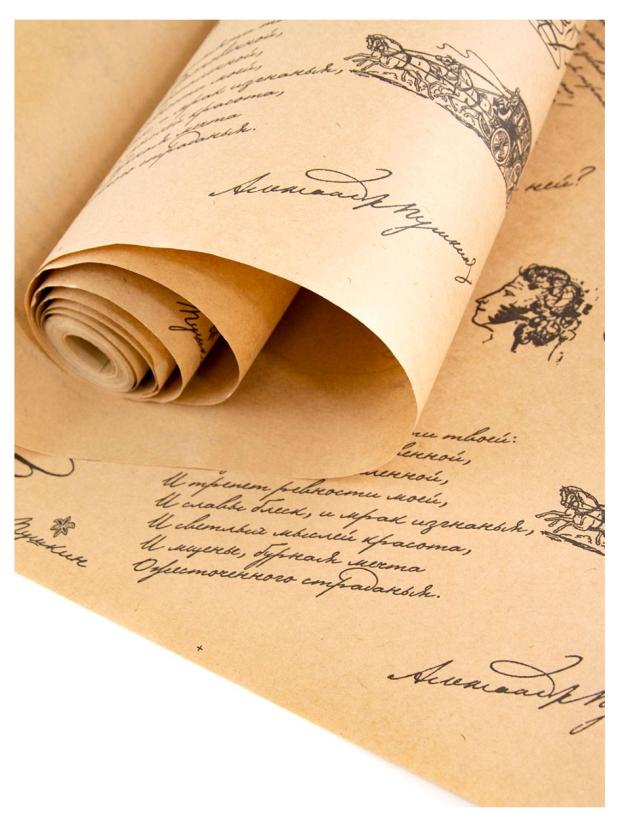 моей,
мрак изгнанья,
красота,
мечта
страданья.
Александр Пушкин
ней?
твоей:
венной,
ленной,
И трепет ревности моей,
И славы блеск, и мрак изгнанья,
И светлых мыслей красота,
И мщенье, бурная мечта
Ожесточенного страданья.
Пушкин
Александр